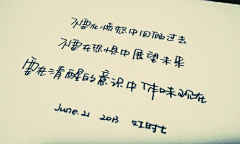 不要在愤怒中回顾过去
不要在恐惧中展望未来
要在清醒的意识中体味现在
June.21 2013